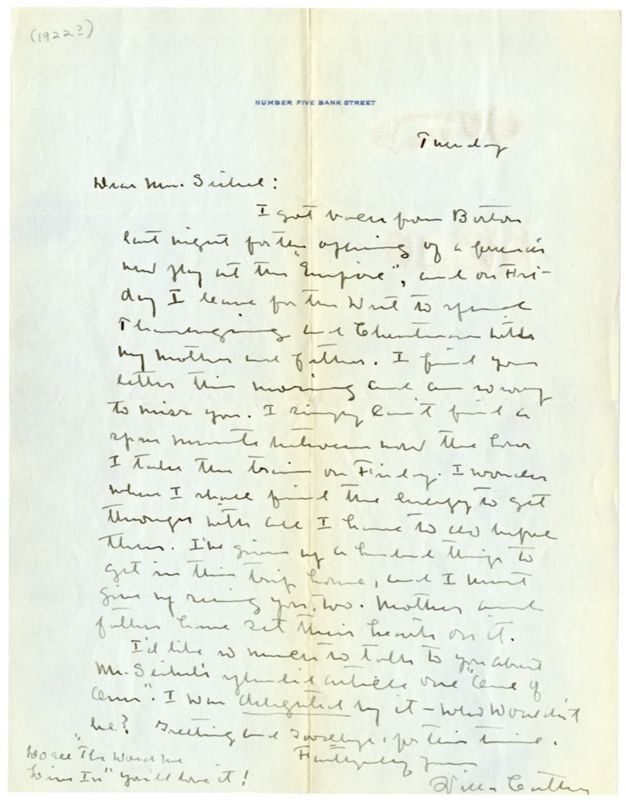 (1922?)
NUMBER FIVE BANK STREET
Tuesday
Dear Mrs. Seibel:
I got back from Boston
last night for the opening of a friend's
new play at the "Empire", and on Fri-
day I leave for the West to spend
Thanksgiving and Christmas with
my mother and father. I find your
letter this morning and am sorry
to miss you. I simply can't find a
spare minute between now the hour
I take the train on Friday. I wonder
where I shall find the energy to get
through with all I have to do before
then. I've given up a hundred things to
get in this trip home, and I must
give up seeing you, too. Mother and
father have set their hearts on it.
I'd like so much to talk to you about
Mr. Seibel's splendid article on "One of
Ours". I was delighted by it - who wouldn't
be? Greeting and Goodbye, for this time.
Faithfully yours
Willa Cather
Do see "The World We
Live In" you'll love it!